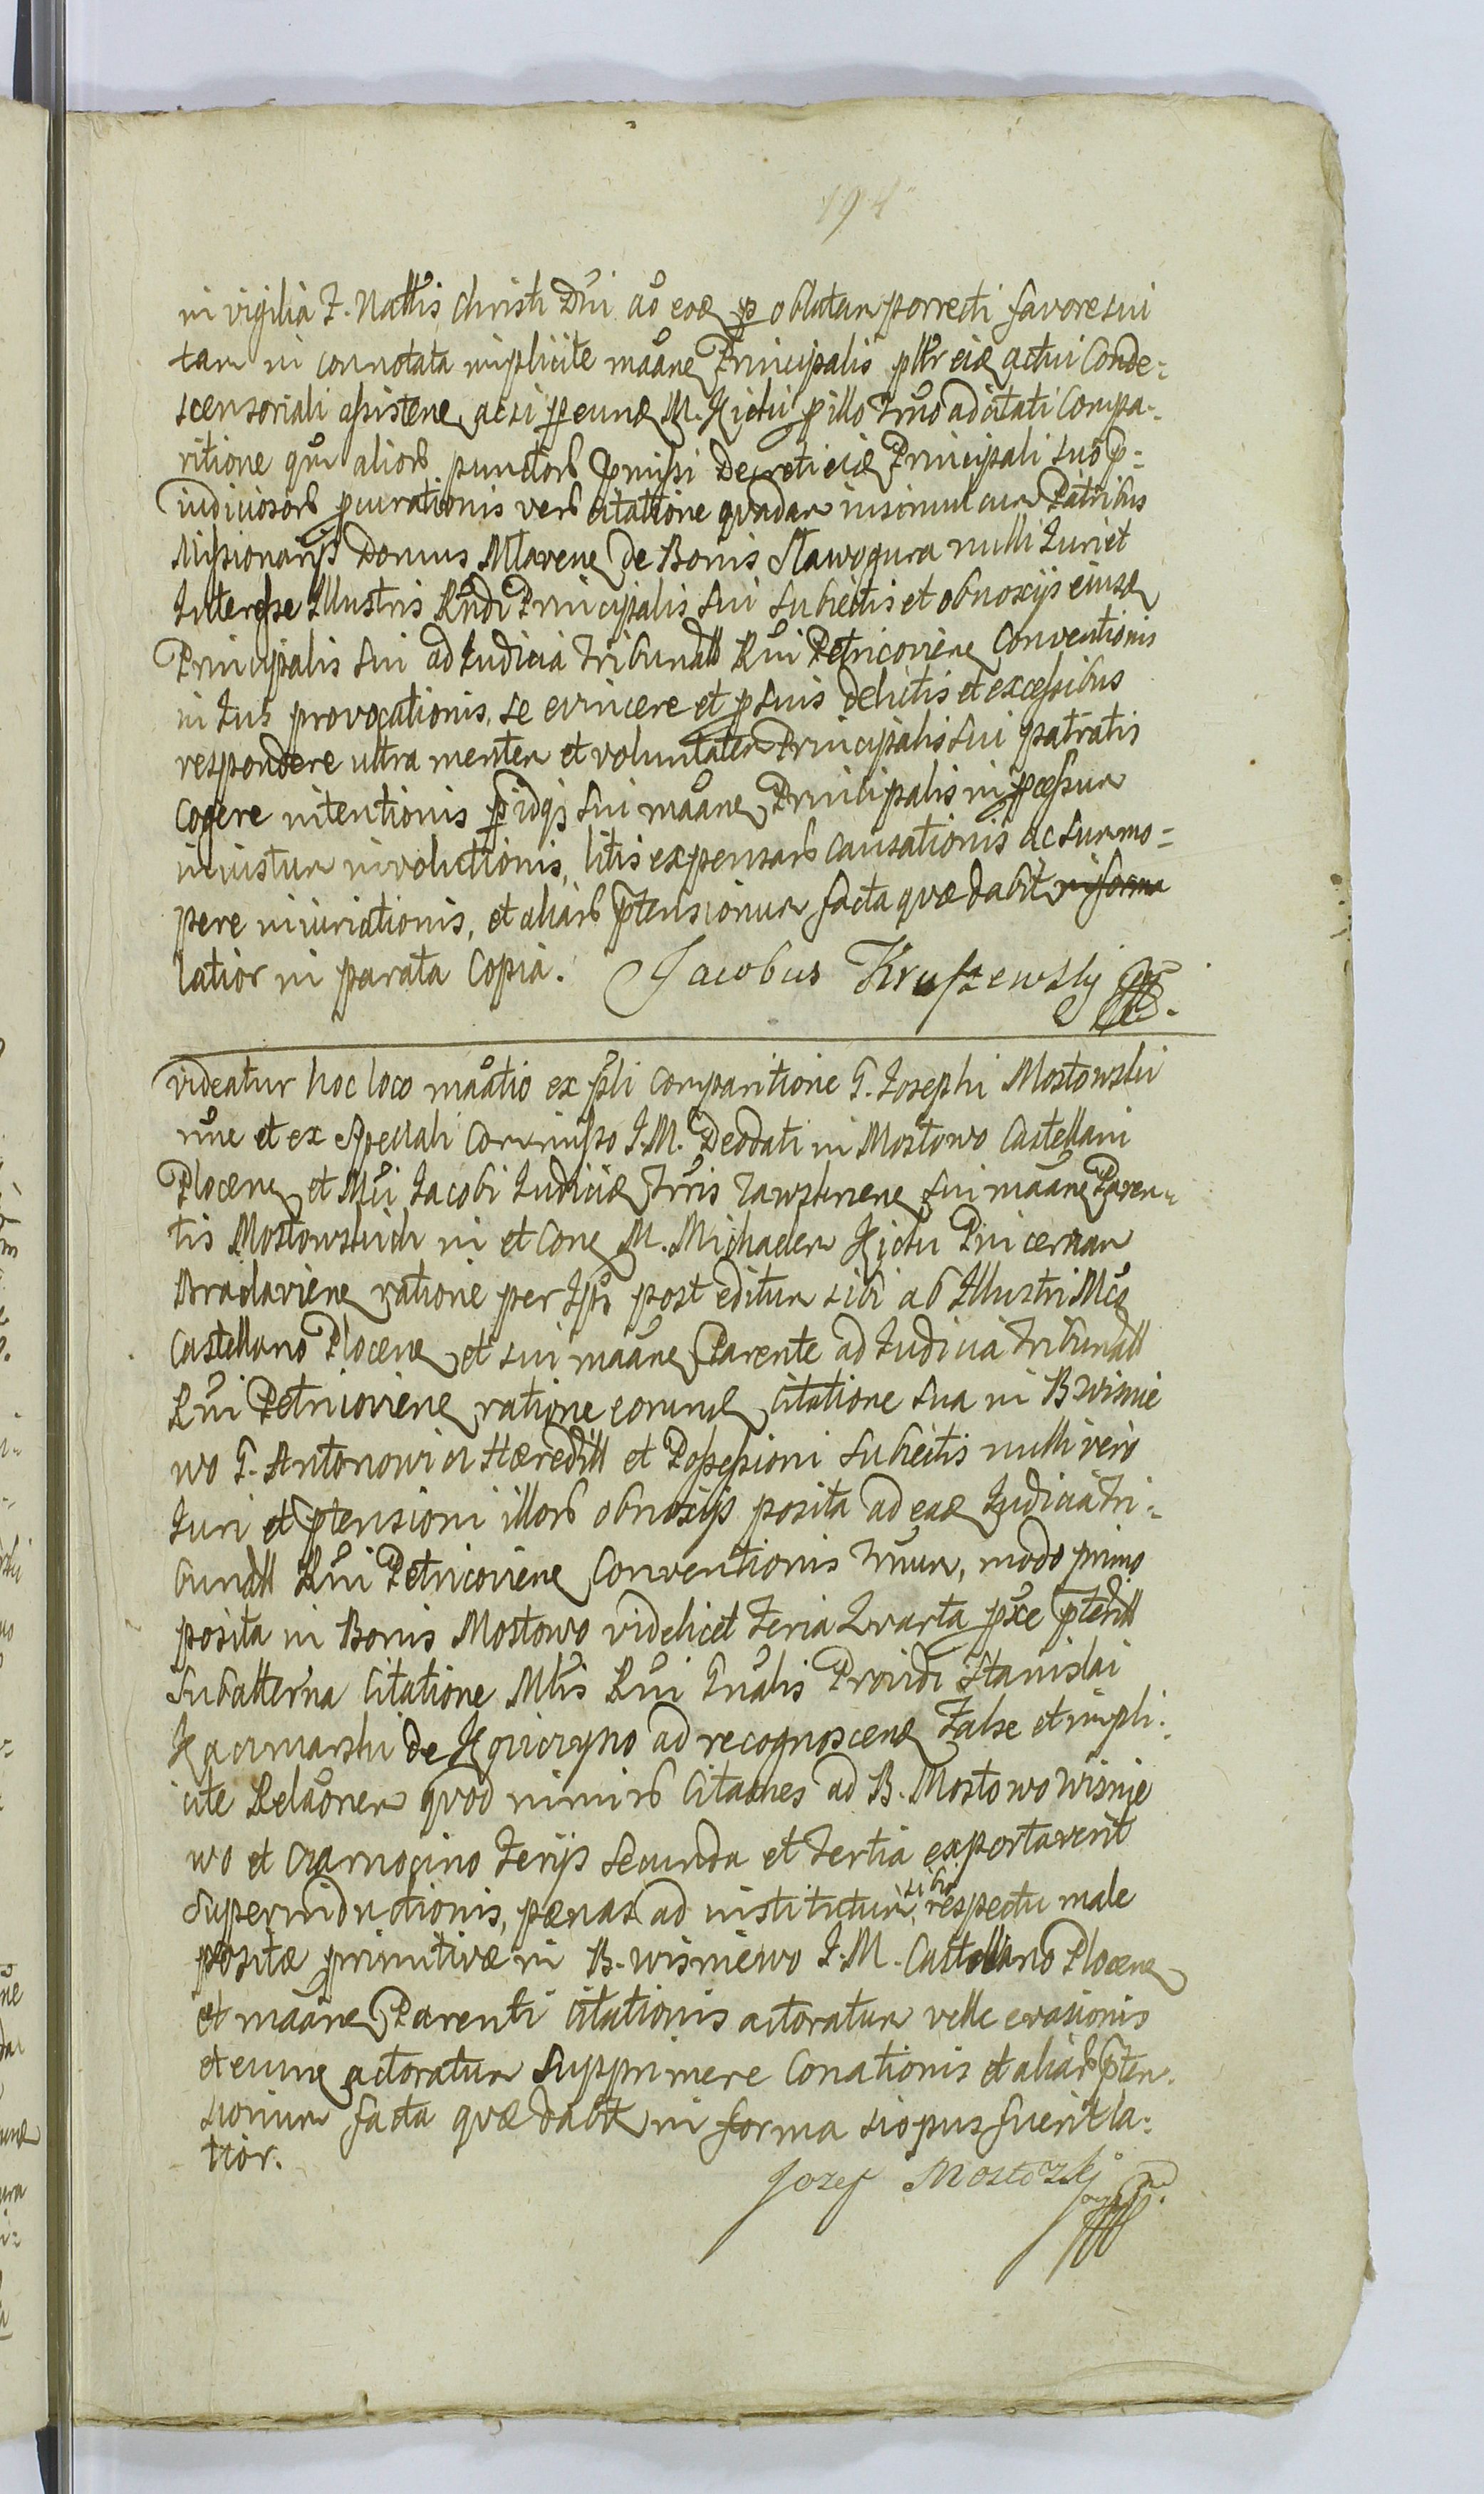 194
in vigilia F. Nattis Christi Dni ao eoa p oblatam porrecti favore sui
tam in connotata implicite maane Principalis pltr eid actui Conde=
scensoriali assistene, ac si p eund M. Kicki p illo Trno adcitati Compa=
ritione qm alior punctor pmissi Decreti eid Principali suo p=
iudiciosor pcurationis vero citatione qvadam insimul cum Patribus
Missionarijs Domus Mlavene de Bonis Sławogura nulli Juri et
Interesse Illustris Rndi Principalis sui subiectis et obnoxijs eiusd
Principalis sui ad Judicia Tribunall Rni Petricoviene Conventionis
in Jus provocationis, se evincere et p suis delictis et excessibus
respondere ultra mentem et voluntatem Principalis sui patratis
cogere intentionis p idq sui maane Principalis in pcessum
iniustum involutionis, litis expensar causationis ac summo=
pere iniuriationis, et aliar ptensionum facta quæ dabit in forma
latior in parata Copia. Jacobus Kruszewsky
videatur hoc loco maatio ex psli Comparitione G. Josephi Mostowski
nne et ex Speciali Commisso J.M. Deodati in Mostowo Castellani
Plocene et Mci Jacobi Judicis Trris Zawskrnene sui maane Paren=
tis Mostowskich in et Cone M. Michaelem Kicki Pincernam
Braclaviene ratione per Ips post editum sibi ab Illustri Mco
Castellano Plocene et sui maane Parente ad Judicia Tribunall
Rni Petricoviene ratione eorund citatione sua in B wisnie
wo G. Antonowi cz Hæreditt et Possessioni subiectis nulli vero
Juri et ptensioni illor obnoxijs posita ad ead Judicia Tri=
bunall Rni Petricoviene Conventionis Trnum, modo primo
posita in Bonis Mostowo videlicet Feria Qvarta pxe pteritt
subalterna Citatione Mtris Rni Gnalis Providi Stanislai
Kaczmarski de Kqviczyno ad recognoscend False et impli=
cite Relaonem quod nimir Citaones ad B. Mostowo Wisnie
wo et Czarnocino Ferijs Secunda et Tertia exportaverit
superinductionis, pœnas ad institutum sibi respectu male
positæ primitivæ in B. wisniewo J.M. Castellano Plocene
et maane Parenti citationis actoratum velle evasionis
et eund actoratum supprimere Conationis et aliar pten=
sionum facta quæ dabit in forma si opus fuerit la=
tior.
Jozef Mostowski